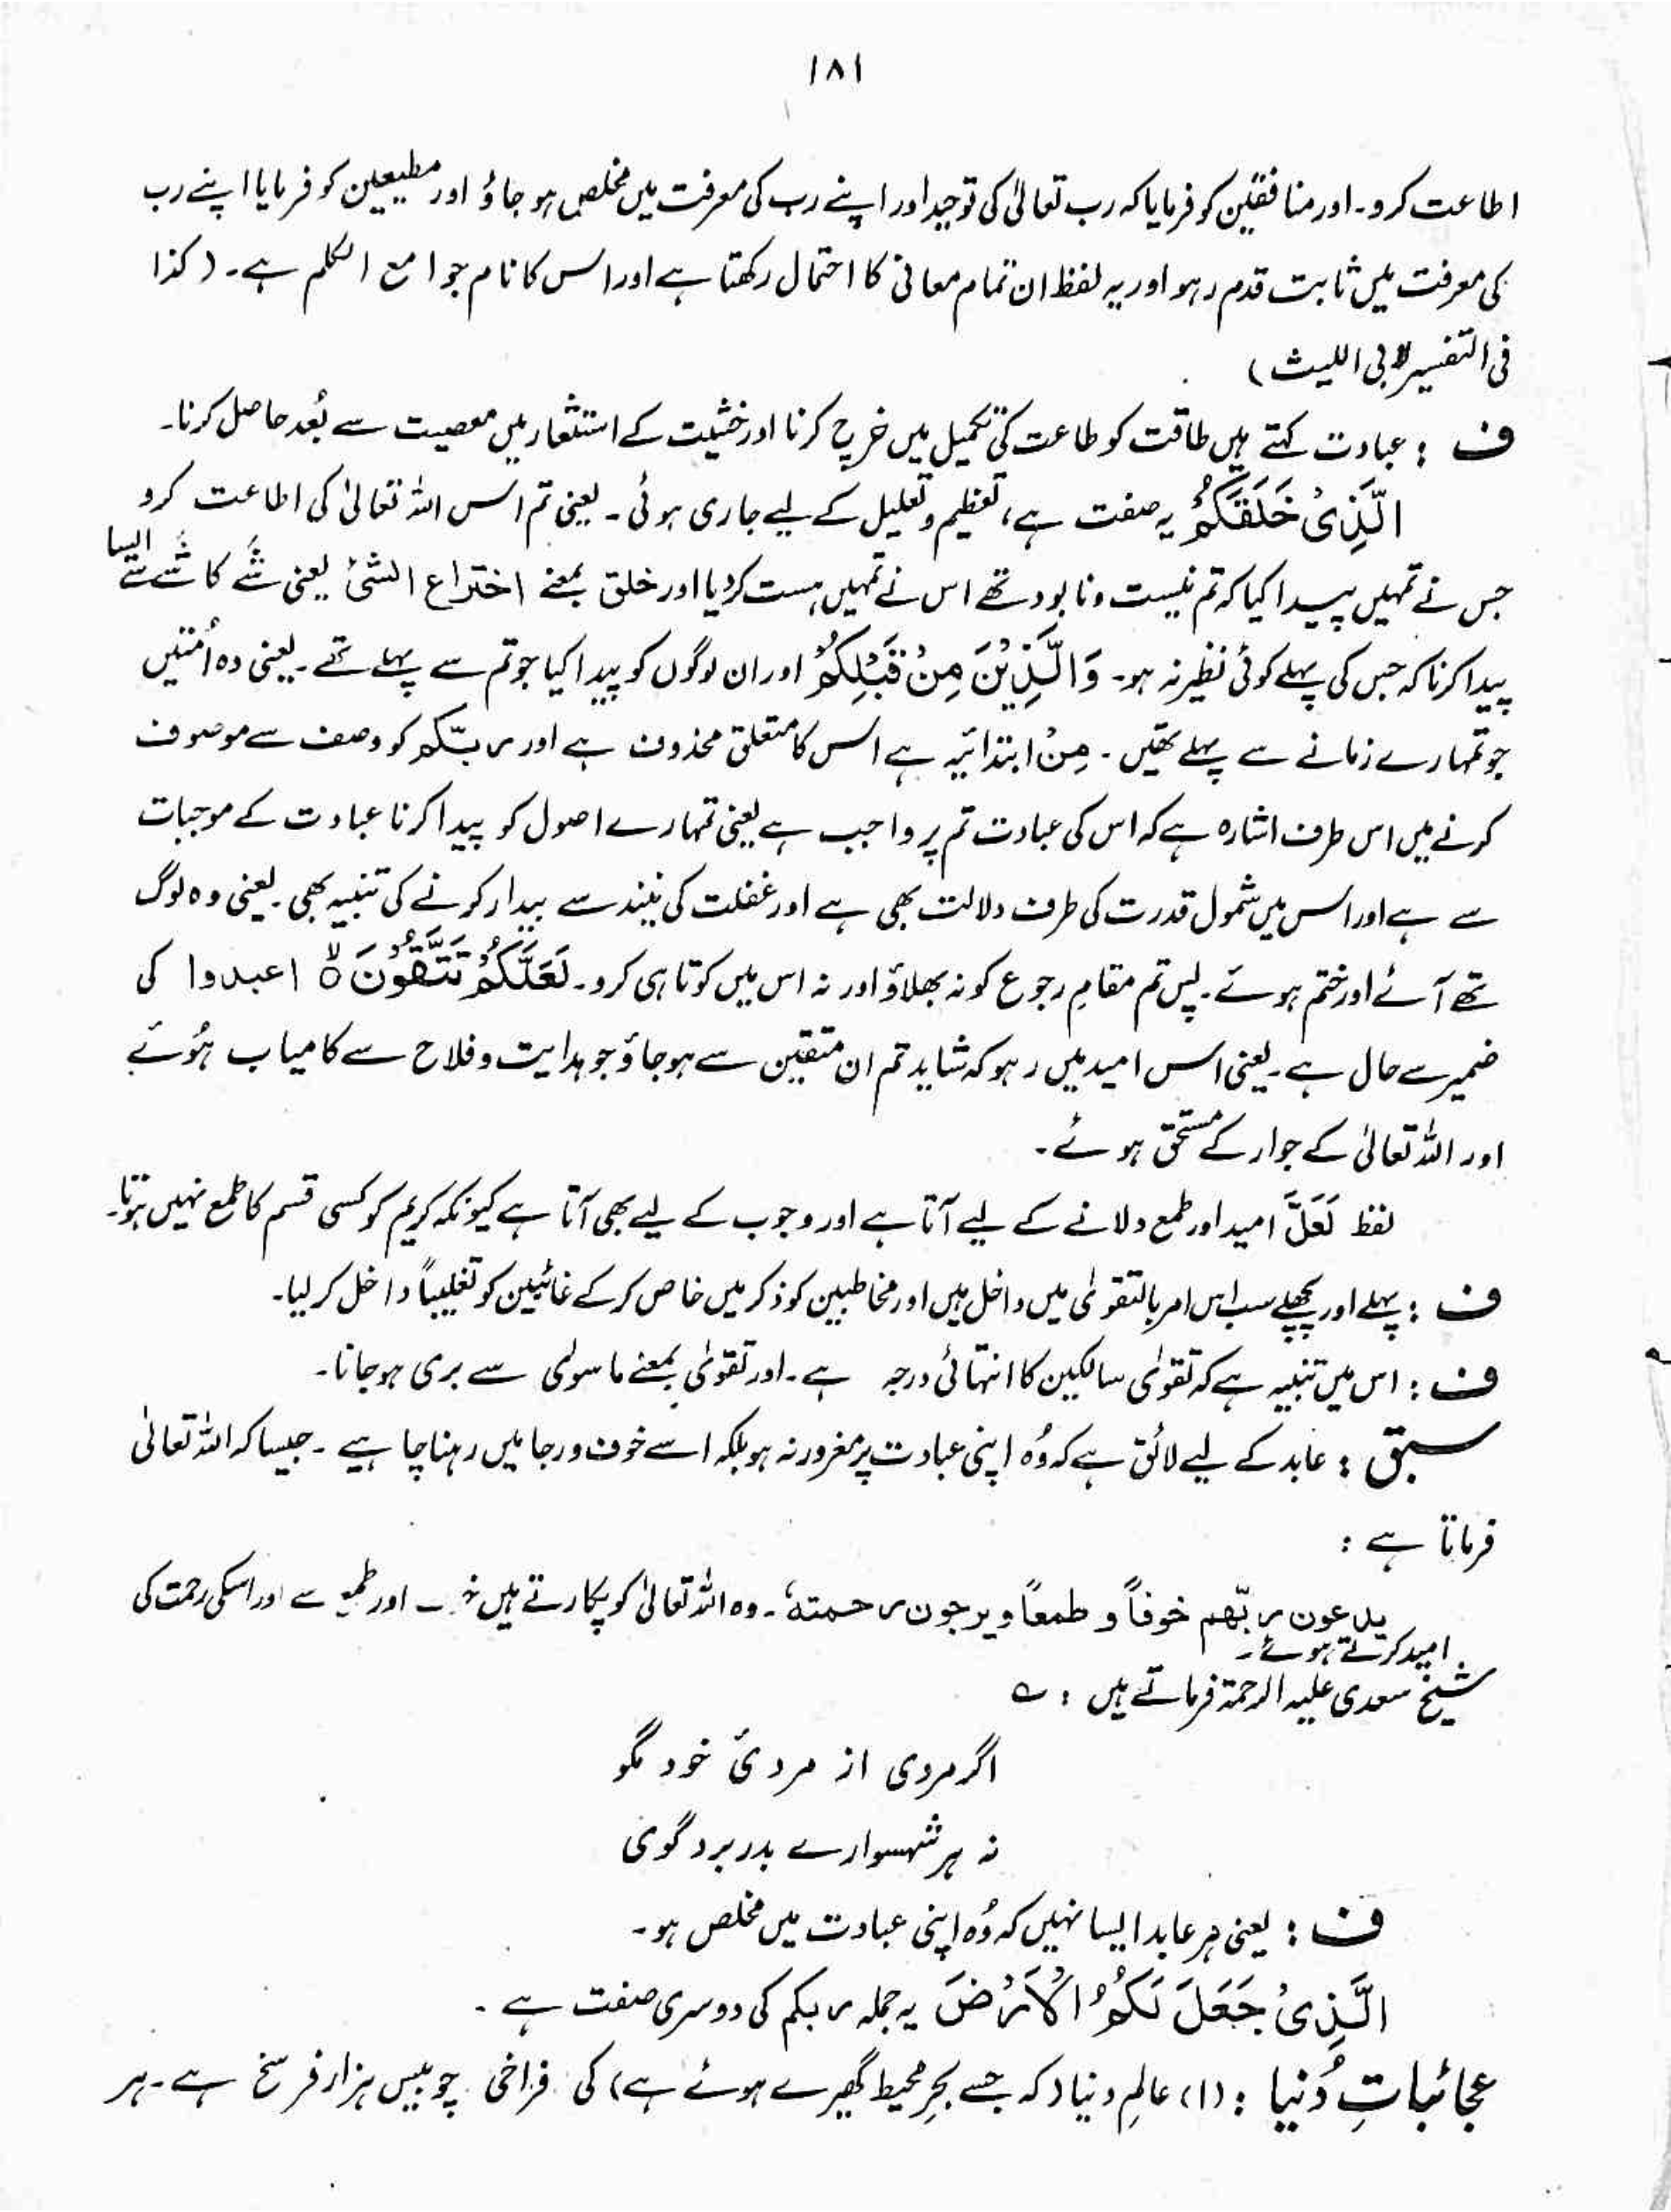 ۱۸۱
اطاعت کرو۔ اور منافقین کو فرمایا کہ رب تعالیٰ کی توحید اور اپنے رب کی معرفت میں مخلص ہو جاؤ اور مطیعین کو فرمایا اپنے رب
کی معرفت میں ثابت قدم رہو اور یہ لفظ ان تمام معانی کا احتمال رکھتا ہے اور اس کا نام جوامع الکلم ہے۔ (کذا
فی التفسیر لابی اللیث)
ف : عبادت کہتے ہیں طاقت کو طاعت کی تکمیل میں خرچ کرنا اور خشیت کے استشعار میں معصیت سے بُعد حاصل کرنا۔
الَّذِیْ خَلَقَکُمْ یہ صفت ہے، تعظیم و تعلیل کے لیے جاری ہوئی۔ یعنی تم اس اللہ تعالیٰ کی اطاعت کرو
جس نے تمہیں پیدا کیا کہ تم نیست و نابود تھے اس نے تمہیں ہست کر دیا اور خلق بمعنے اختراع الشئ یعنی شے کا شے سے ایسا
پیدا کرنا کہ جس کی پہلے کوئی نظیر نہ ہو۔ وَالَّذِیْنَ مِنْ قَبْلِکُمْ اور ان لوگوں کو پیدا کیا جو تم سے پہلے تھے۔ یعنی وہ اُمتیں
جو تمہارے زمانے سے پہلے تھیں۔ مِنْ ابتدائیہ ہے اس کا متعلق محذوف ہے اور ربّکم کو وصف سے موصوف
کرنے میں اس طرف اشارہ ہے کہ اس کی عبادت تم پر واجب ہے یعنی تمہارے اصول کو پیدا کرنا عبادت کے موجبات
سے ہے اور اس میں شمول قدرت کی طرف دلالت بھی ہے اور غفلت کی نیند سے بیدار کرنے کی تنبیہ بھی۔ یعنی وہ لوگ
تھے آئے اور ختم ہوئے۔ پس تم مقامِ رجوع کو نہ بھلاؤ اور نہ اس میں کوتاہی کرو۔ لَعَلَّکُمْ تَتَّقُوْنَ ۙ اعبدوا کی
ضمیر سے حال ہے۔ یعنی اس امید میں رہو کہ شاید تم ان متقین سے ہو جاؤ جو ہدایت و فلاح سے کامیاب ہوئے
اور اللہ تعالیٰ کے جوار کے مستحق ہوئے۔
لفظ لَعَلَّ امید اور طمع دلانے کے لیے آتا ہے اور وجوب کے لیے بھی آتا ہے کیونکہ کریم کو کسی قسم کا طمع نہیں ہوتا۔
ف : پہلے اور پچھلے سب اس امر بالتقویٰ میں داخل ہیں اور مخاطبین کو ذکر میں خاص کر کے غائبین کو تغلیباً داخل کر لیا۔
ف : اس میں تنبیہ ہے کہ تقویٰ سالکین کا انتہائی درجہ ہے۔ اور تقویٰ بمعنے ماسوٰی سے بری ہو جانا۔
سبق : عابد کے لیے لائق ہے کہ وُہ اپنی عبادت پر مغرور نہ ہو بلکہ اسے خوف و رجا میں رہنا چاہیے۔ جیسا کہ اللہ تعالیٰ
فرماتا ہے :
یدعون ربّھم خوفاً و طمعاً و یرجون رحمتہٗ۔ وہ اللہ تعالیٰ کو پکارتے ہیں اور طمع سے اور اسکی رحمت کی
امید کرتے ہوئے۔
شیخ سعدی علیہ الرحمۃ فرماتے ہیں : ؎
اگر مردی از مردیٔ خود مگو
نہ ہر شہسوارے بدر برد گوی
ف : یعنی ہر عابد ایسا نہیں کہ وُہ اپنی عبادت میں مخلص ہو۔
الَّذِیْ جَعَلَ لَکُمُ الْاَرْضَ یہ جملہ ربکم کی دوسری صفت ہے۔
عجائباتِ دُنیا : (۱) عالمِ دنیا (کہ جسے بحرِ محیط گھیرے ہوئے ہے) کی فراخی چوبیس ہزار فرسخ ہے۔ ہر